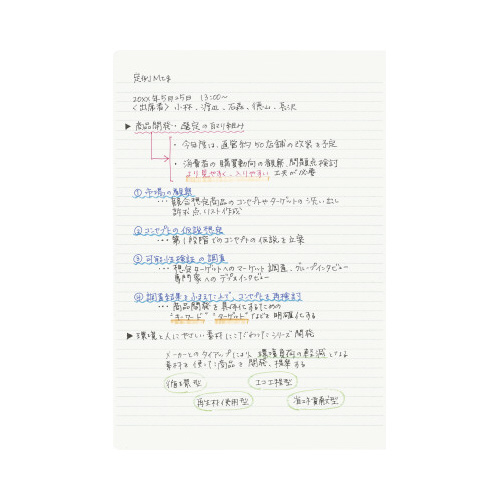 定例MEMO
20XX年5月25日 13:00〜
〈出席者〉小林、渡辺、石森、徳山、長沢
▶商品開発・選定の取り組み
・今年度は、直営約50店舗の改装を予定
・消費者の購買動向の観察、問題点検討
より見やすく、入りやすい工夫が必要
①市場の観察
…競合想定商品のコンセプトやターゲットの洗い出し
訴求点リスト作成
②コンセプトの仮説想定
…第1段階でのコンセプトの仮説を立案
③可能性検証の調査
…想定ターゲットへのマーケット調査、グループインタビュー
専門家へのデプスインタビュー
④調査結果をふまえた上で、コンセプトを再検討
…商品開発を具体化するための
"キーワード" "ターゲット"などを明確化する
▶環境と人にやさしい素材にこだわったシリーズ開発
メーカーとのタイアップにより、環境負荷の軽減となる
素材を使った商品を開発、提案する
循環型
エコ工程型
再生材使用型
省エネ貢献型